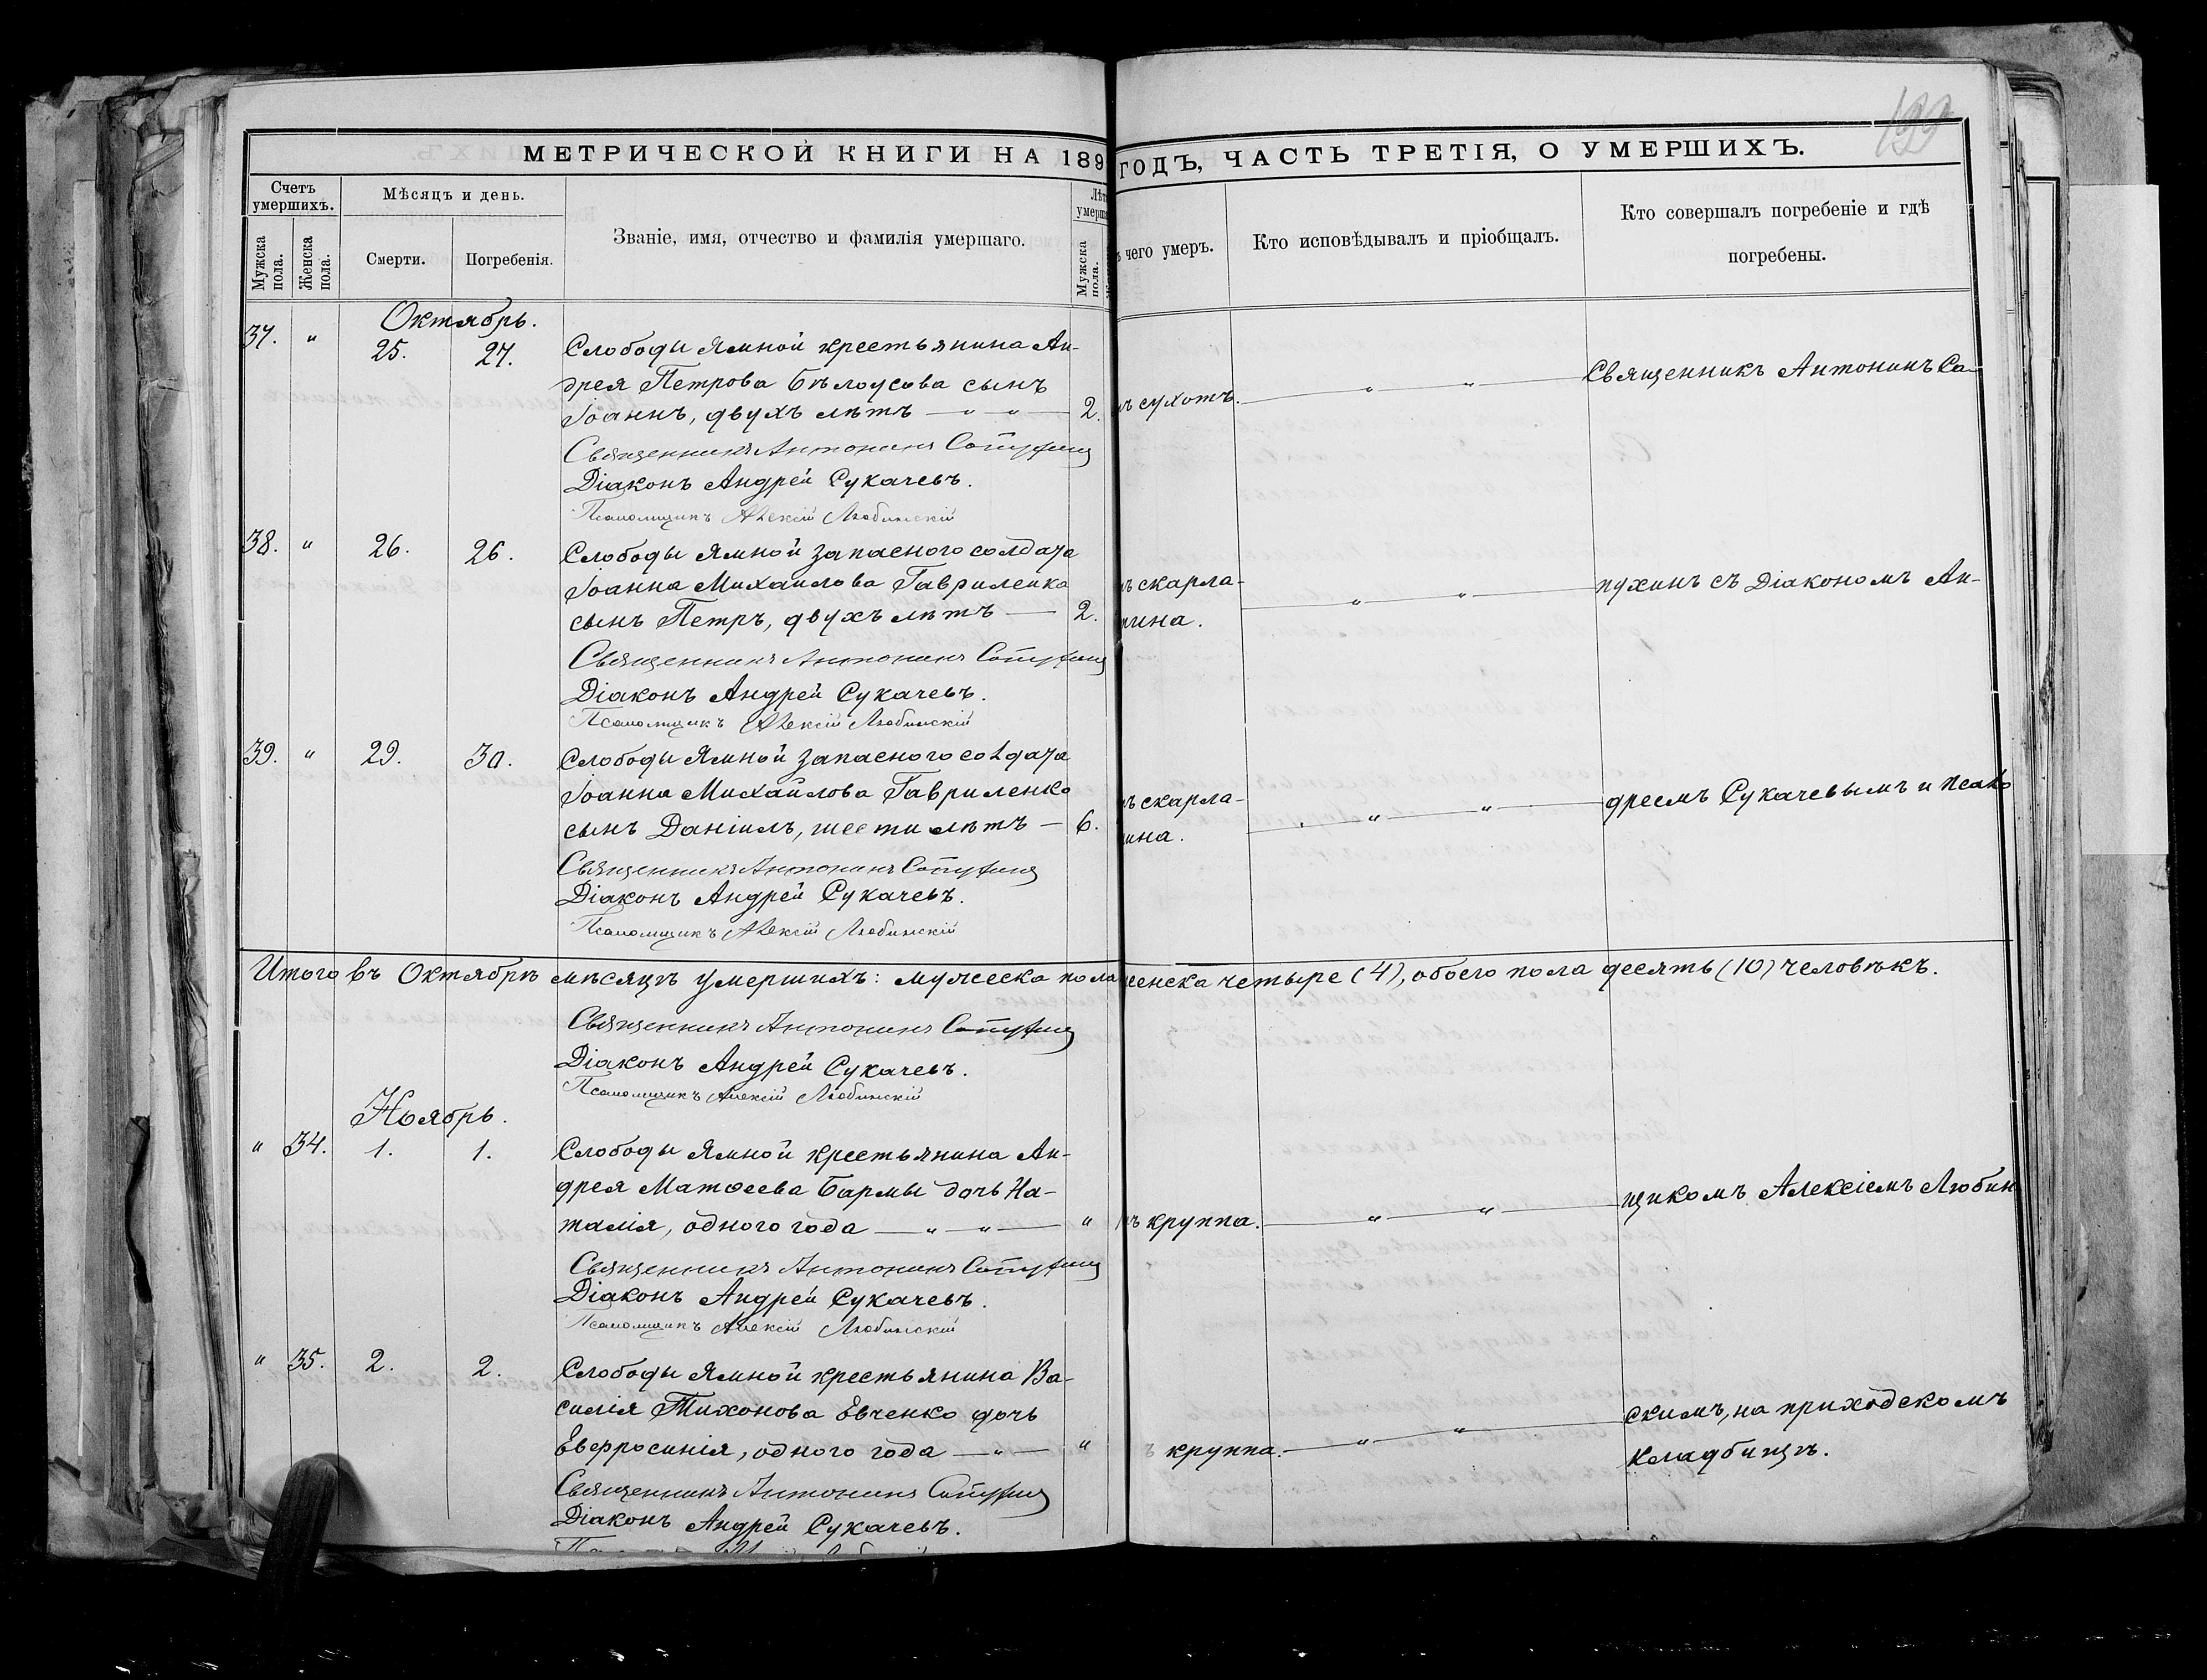 199
МЕТРИЧЕСКОЙ КНИГИ НА 189 ГОДЪ, ЧАСТЬ ТРЕТІЯ, О УМЕРШИХЪ.
Счетъ умершихъ.
Мужска пола.
Женска пола.
Мѣсяцъ и день.
Смерти.
Погребенія.
Званіе, имя, отчество и фамилія умершаго.
Лѣт
умерш
Мужска пола.
чего умеръ.
Кто исповѣдывалъ и пріобщалъ.
Кто совершалъ погребеніе и гдѣ
погребены.
Октябрь.
37. " 25. 27. Слободы Ямной крестьянина Ан-
дрея Петрова Бѣлоусова сынъ
Іоаннъ, двухъ лѣтъ — " — " — 2. ъ сухотъ. — " — " — Священникъ Антонинъ Са-
Священникъ Антонинъ Сапухинъ
Діаконъ Андрей Сукачевъ.
Псаломщикъ Алексій Любинскій
38. " 26. 26. Слободы Ямной запаснаго солдата
Іоанна Михаилова Гавриленка
сынъ Петръ, двухъ лѣтъ — 2. ъ скарла-
тина. — " — " — пухинъ съ Діакономъ Ан-
Священникъ Антонинъ Сапухинъ
Діаконъ Андрей Сукачевъ.
Псаломщикъ Алексій Любинскій
39. " 29. 30. Слободы Ямной запасного солдата
Іоанна Михайлова Гавриленко
сынъ Даніилъ, шести лѣтъ — 6. ъ скарла-
ина. — " — " — дреемъ Сукачевымъ и псало
Священникъ Антонинъ Сапухинъ
Діаконъ Андрей Сукачевъ.
Псаломщикъ Алексій Любинскій
Итого въ Октябрѣ мѣсяцѣ умершихъ: мужеска пола енска четыре (4), обоего пола десять (10) человѣкъ.
Священникъ Антонинъ Сапухинъ
Діаконъ Андрей Сукачевъ.
Псаломщикъ Алексій Любинскій
Ноябрь.
" 34. 1. 1. Слободы Ямной крестьянина Ан-
дрея Матѳеева Бармы дочь На-
талія, одного года — " — " — " ъ круппа. — " — " — щикомъ Алексіемъ Любин
Священникъ Антонинъ Сапухинъ
Діаконъ Андрей Сукачевъ.
Псаломщикъ Алексій Любинскій
" 35. 2. 2. Слободы Ямной крестьянина Ва-
силія Тихонова Евченко дочь
Евфросинія, одного года — " — " ъ круппа. — " — " — скимъ, на приходскомъ
кладбищѣ.
Священникъ Антонинъ Сапухинъ
Діаконъ Андрей Сукачевъ.